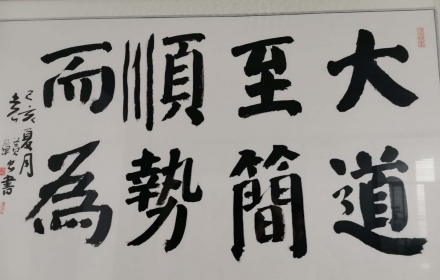 大道
至簡
順勢
而為
己亥夏月
書